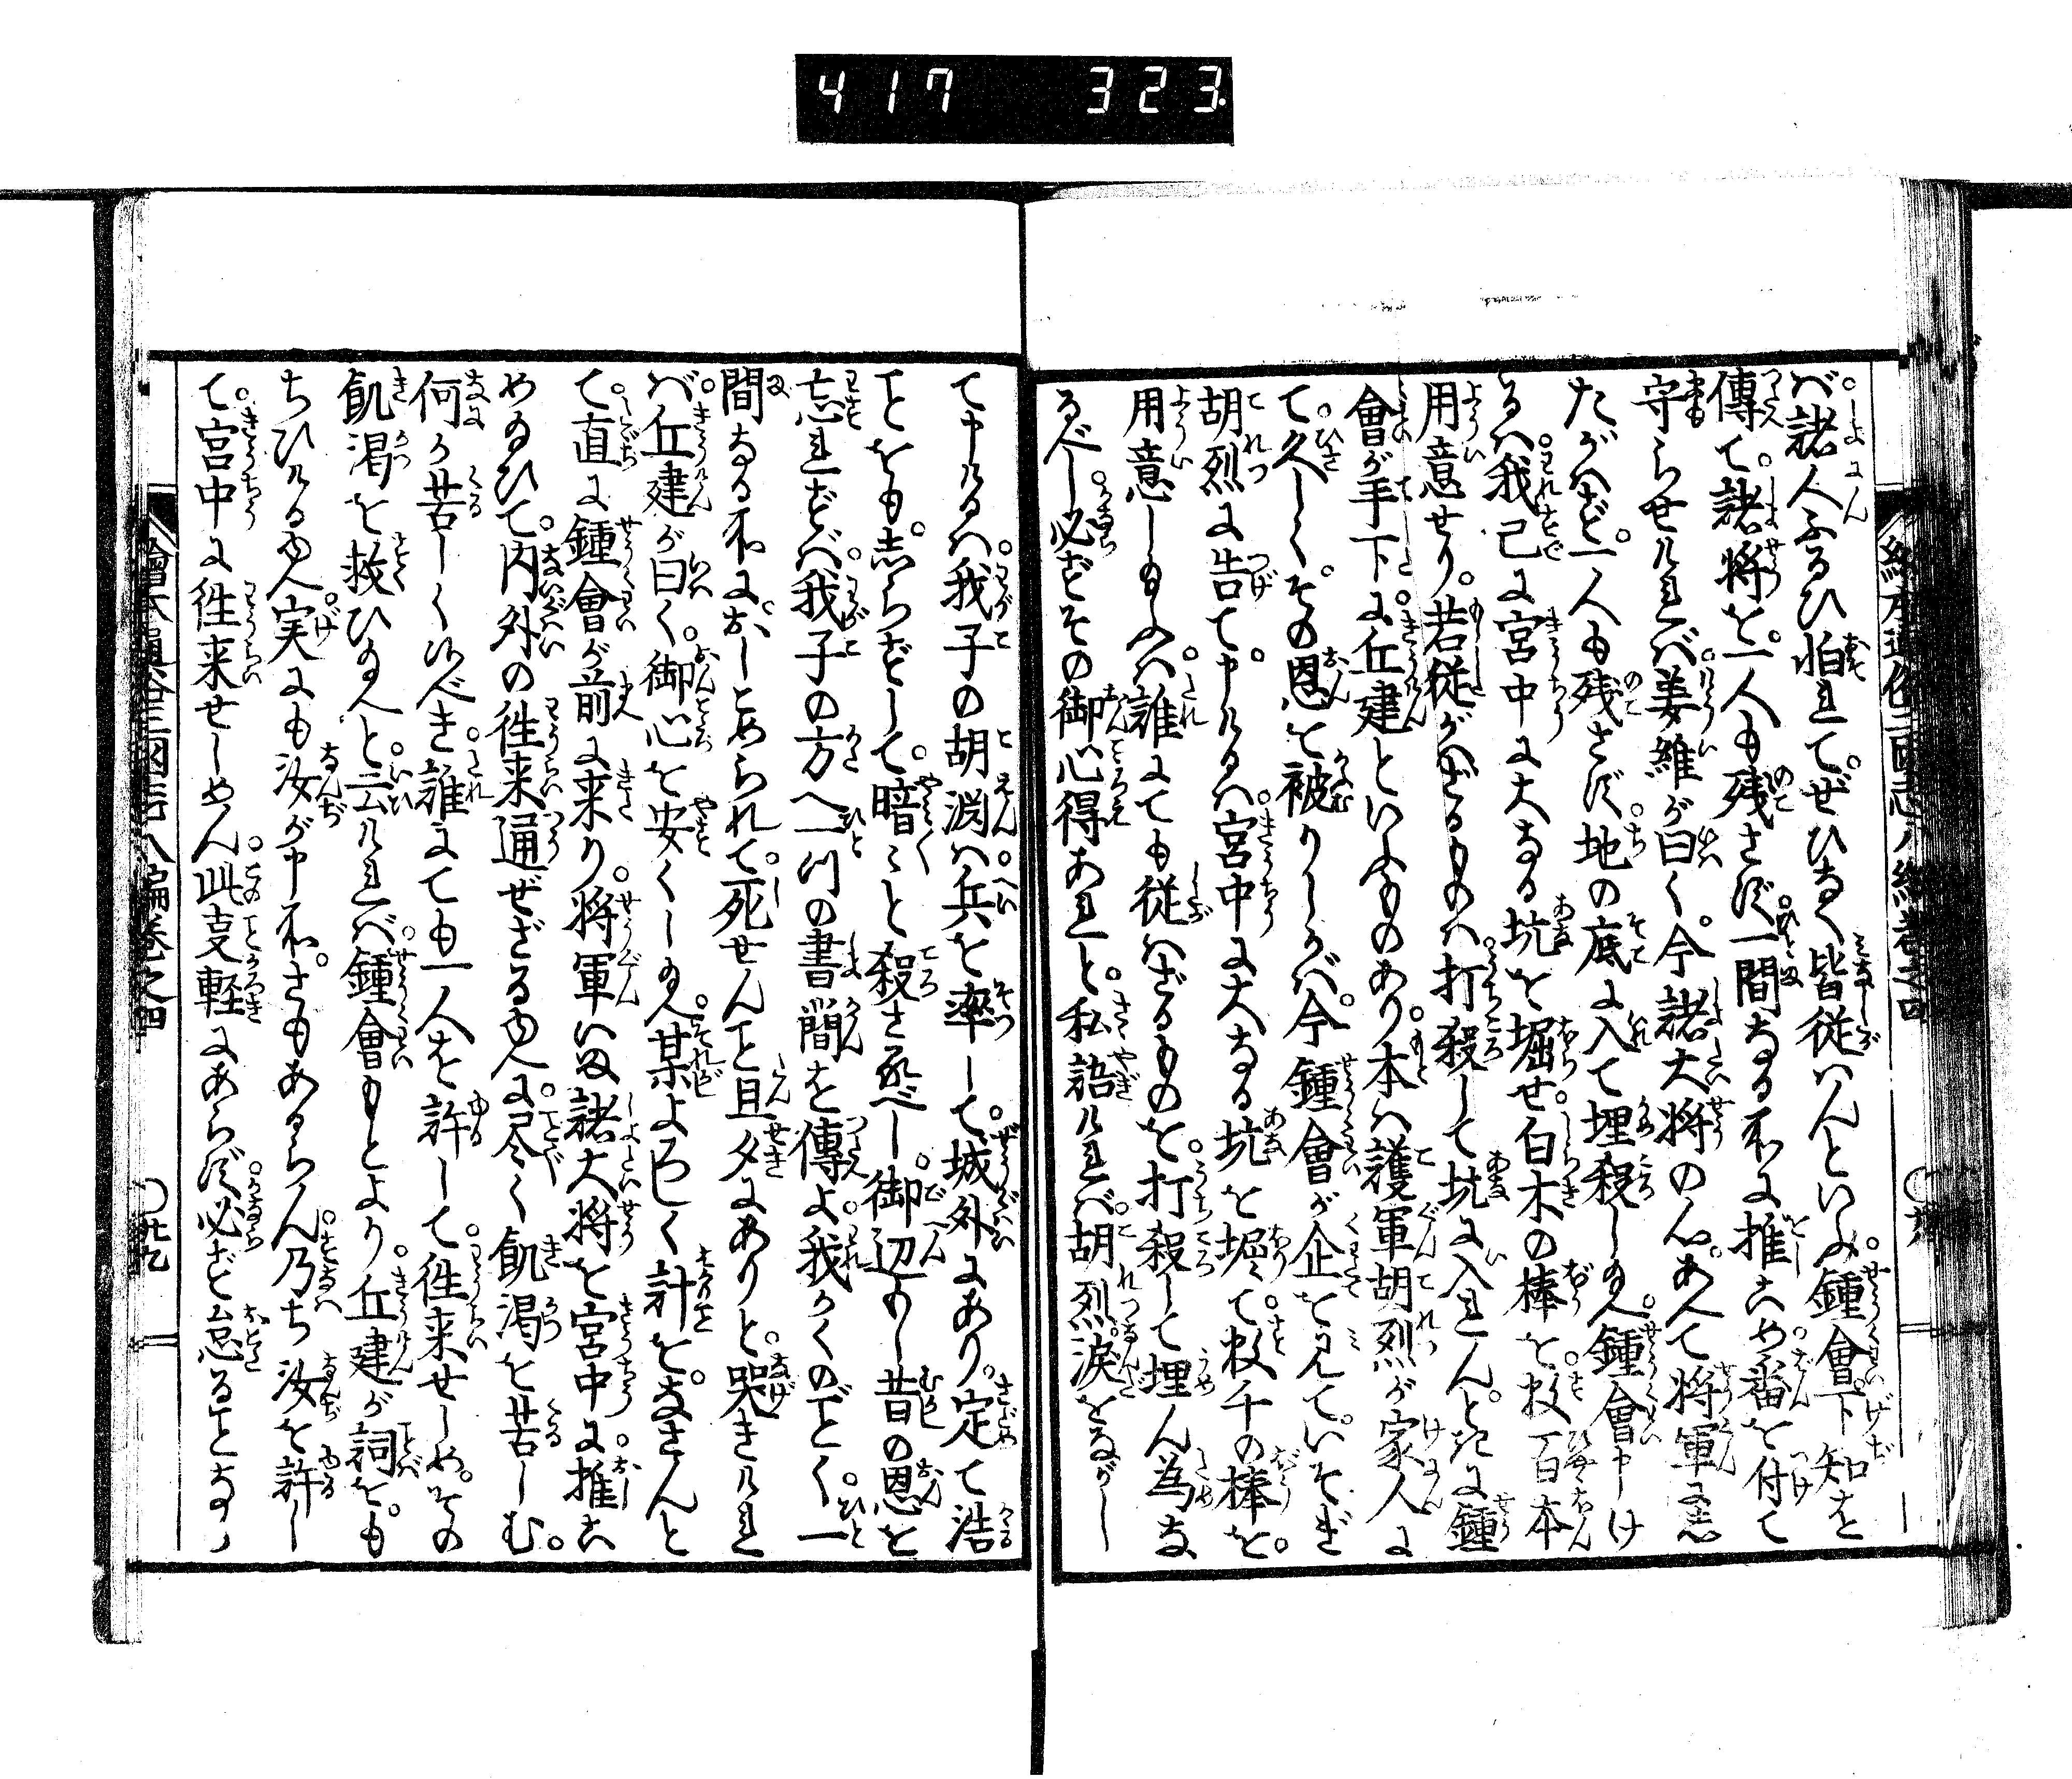 417 323
バ諸人ふるひ怕れて。ぜひなく皆従ハんといふ。鍾會下知を
傳て。諸将を。一人も残さず。一間なる所に推こめ。番を付て
守らせければ。姜維が曰く。今諸大将のん。あへて将軍に
たがハざど。一人も残さず。地の底に入て埋殺し給へ。鍾會申け
るハ。我已に宮中に大なる坑を堀せ。白木の棒を。数百本
用意せり。若従がハざるものハ。打殺して坑に入れんと。ときに鍾
會が手下に。丘建といふものあり。本ハ護軍胡烈が家人に
て。久しく。その恩を被りしかバ。今鍾會が企を見て。いそぎ
胡烈に告て。申けるハ。宮中に大なる坑を堀て。数千の棒を。
用意し給ふハ。誰にても従ハざるものを。打殺して埋ん為な
るべし。必ずその御心得あれと。私語ければ。胡烈。涙をながし
て申けるハ。我子の胡渕ハ。兵を率して。城外にあり。定て浩
ことをも志らずして。暗〻と殺され候べし。御辺もし昔の恩を
忘れずバ。我子の方へ一つの書簡を傳よ。我かくのごとく。一
間なる所に。おしこめられて。死せんこと且夕にありと。哭きけれ
バ。丘建が曰く。御心を安くし給へ。某よろしく計を。なさんと
て。直に鍾會が前に来り。将軍いま諸大将を宮中に。推こ
め給ひて。内外の往来通ぜざるゆへに。尽く飢渇を苦しむ。
何か苦しく候べき。誰にても一人を許して。往来せしめ。その
飢渇を救ひ給へと。云ければ。鍾會もとより。丘建が詞を。も
ちひけるゆへ。実にも汝が申所。さもあるらん。乃ち汝を許し
て。宮中に往来せしめん。此支軽にあらず。必ず怠ることなか
繪本通俗三國志八編巻之四
○廿九